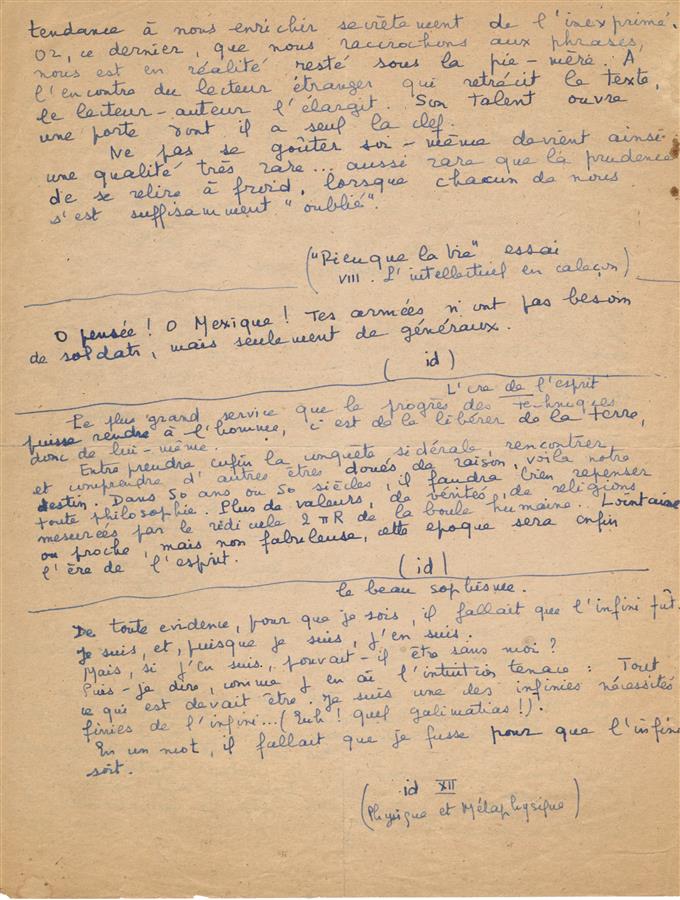 tendance à nous enrichir secrètement de l'inexprimé.
Or, ce dernier, que nous raccrochons aux phrases,
nous est en réalité resté sous la pie-mère. A
l'encontre du lecteur étranger qui rétrécit le texte,
le lecteur-auteur l'élargit. Son talent ouvre
une porte dont il a seul la clef.
Ne pas se goûter soi-même devient ainsi
une qualité très rare... aussi rare que la prudence
de se relire à froid, lorsque chacun de nous
s'est suffisamment "oublié".
("Rien que la Vie" essai
VIII. L'intellectuel en caleçon)
O pensée! O Mexique! Tes armées n'ont pas besoin
de soldats, mais seulement de généraux.
(id)
L'ère de l'esprit
Le plus grand service que le progrès des techniques
puisse rendre à l'homme, c'est de le libérer de la terre,
donc de lui-même.
Entreprendre, enfin la conquête sidérale, rencontrer,
et comprendre d'autres êtres doués de raison, voilà notre
destin. Dans 50 ans ou 50 siècles, il faudra bien repenser
toute philosophie. Plus de valeurs, de vérités, de religions
mesurées par le ridicule 2πR de la boule humaine... Lointaine
ou proche, mais non fabuleuse, cette epoque sera enfin
l'ère de l'esprit.
(id)
le beau sophisme.
De toute evidence, pour que je sois, il fallait que l'infini fût.
Je suis, et, puisque je suis, j'en suis.
Mais, si j'en suis, pouvait-il être sans moi?
Puis-je dire, comme j'en ai l'intuition tenace: Tout
ce qui est devait être. Je suis une des infinies nécessités
finies de l'infini...(Euh! quel galimatias!).
En un mot, il fallait que je fusse pour que l'infini
soit.
id XII
(Physique et Métaphysique)